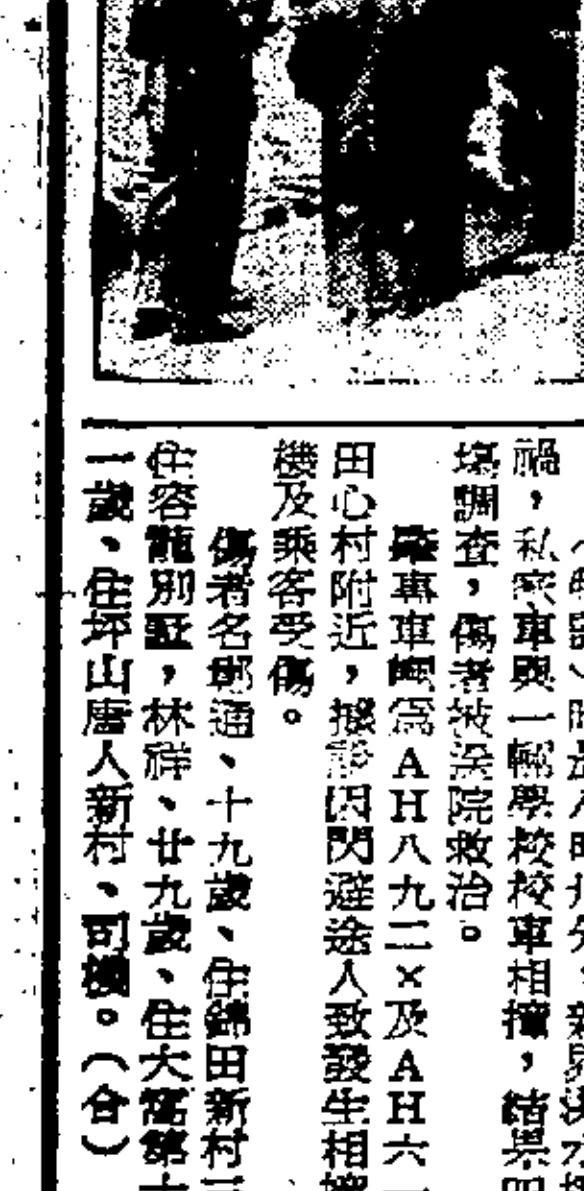 禍，私家車與一輛學校校車相撞，結果四
塲調查，傷者被送院救治。
車輛爲AH八九二×及AH六一
田心村附近，據因閃避途人致發生相撞
機及乘客受傷。
傷者名通、十九歲、住錦田新村三
住容龍別墅，林祥、廿九歲、住大窩第十
一歲、住坪山唐人新村、司機。（合）